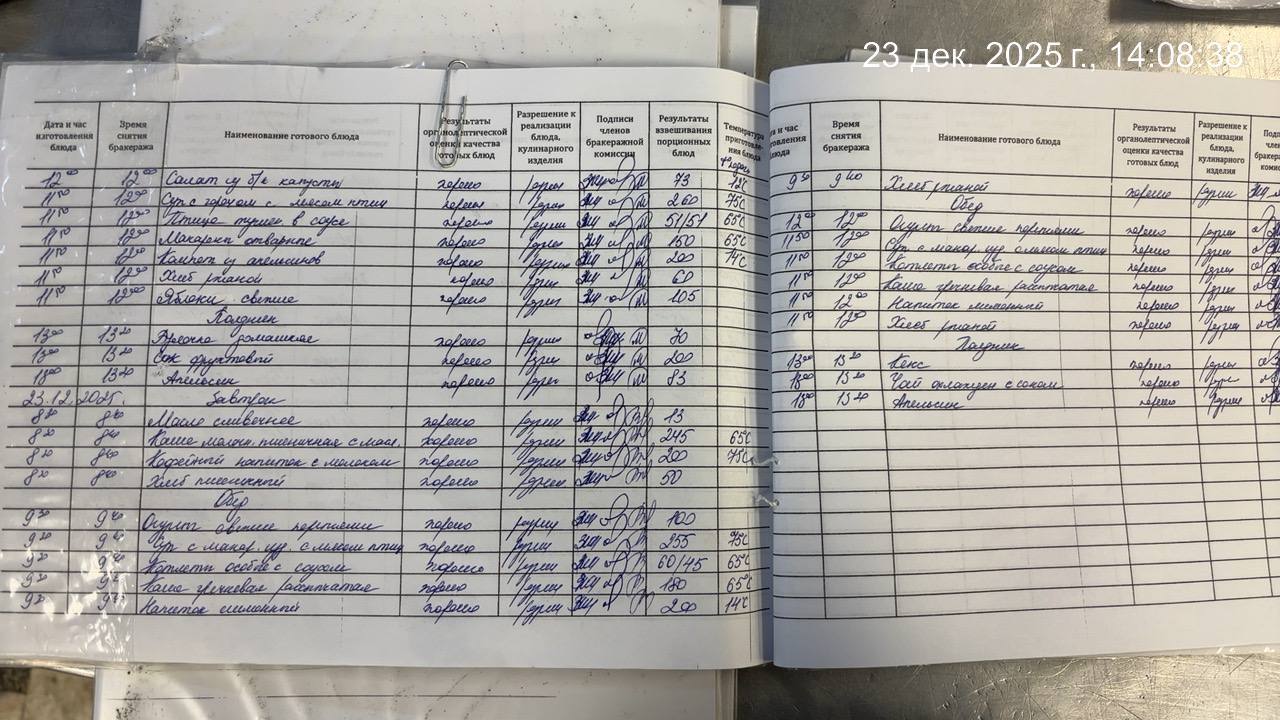 23 дек. 2025 г., 14:08:38
Дата и час изготовления блюда Время снятия бракеража Наименование готового блюда Результаты органолептической оценки качества готовых блюд Разрешение к реализации блюда, кулинарного изделия Подписи членов бракеражной комиссии Результаты взвешивания порционных блюд Температура приготовления блюда
12 00 12 00 Салат из б/к капусты хорошо 73 12С
11 50 12 00 Суп с горохом с мясом птиц хорошо 260 75С
11 50 12 00 Птица тушен в соусе хорошо 51/51 65С
11 50 12 00 Макароны отварные хорошо 150 65С
11 50 12 00 Компот из апельсинов хорошо 200 14С
11 50 12 00 Хлеб ржаной хорошо 60
11 50 12 00 Яблоки свежие хорошо 105
Полдник
13 00 13 20 ромашкое хорошо 70
13 00 13 20 Сок фруктовый хорошо 200
13 20 Апельсин хорошо 83
23.12.2025. Завтрак
8 20 8 40 Масло сливочное хорошо 13
8 20 8 40 Каша молочн. пшеничная с масл. хорошо 245 65С
8 20 8 40 Кофейный напиток с молоком хорошо 200 75С
8 20 8 40 Хлеб пшеничный хорошо 50
Обед
9 20 9 40 Огурцы свежие порциями хорошо 100
9 20 9 40 Суп с макар. изд. с мясом птиц хорошо 255 75С
9 20 9 40 Котлеты особые с соусом хорошо 60/45 65С
9 20 9 40 Каша гречневая рассыпчатая хорошо 180 65С
9 20 9 40 Напиток лимонный хорошо 200 14С
Время снятия бракеража Наименование готового блюда Результаты органолептической оценки качества готовых блюд Разрешение к реализации блюда, кулинарного изделия
9 30 9 40 Хлеб ржаной хорошо
Обед
12 00 12 00 Огурцы свежие порциями хорошо
11 50 12 00 Суп с макар. изд. с мясом птиц хорошо
11 50 12 00 Котлеты особые с соусом хорошо
11 50 12 00 Каша гречневая рассыпчатая хорошо
11 50 12 00 Напиток лимонный хорошо
11 50 12 00 Хлеб ржаной хорошо
Полдник
13 00 13 20 Кекс хорошо
13 20 Чай с соком хорошо
13 20 Апельсин хорошо